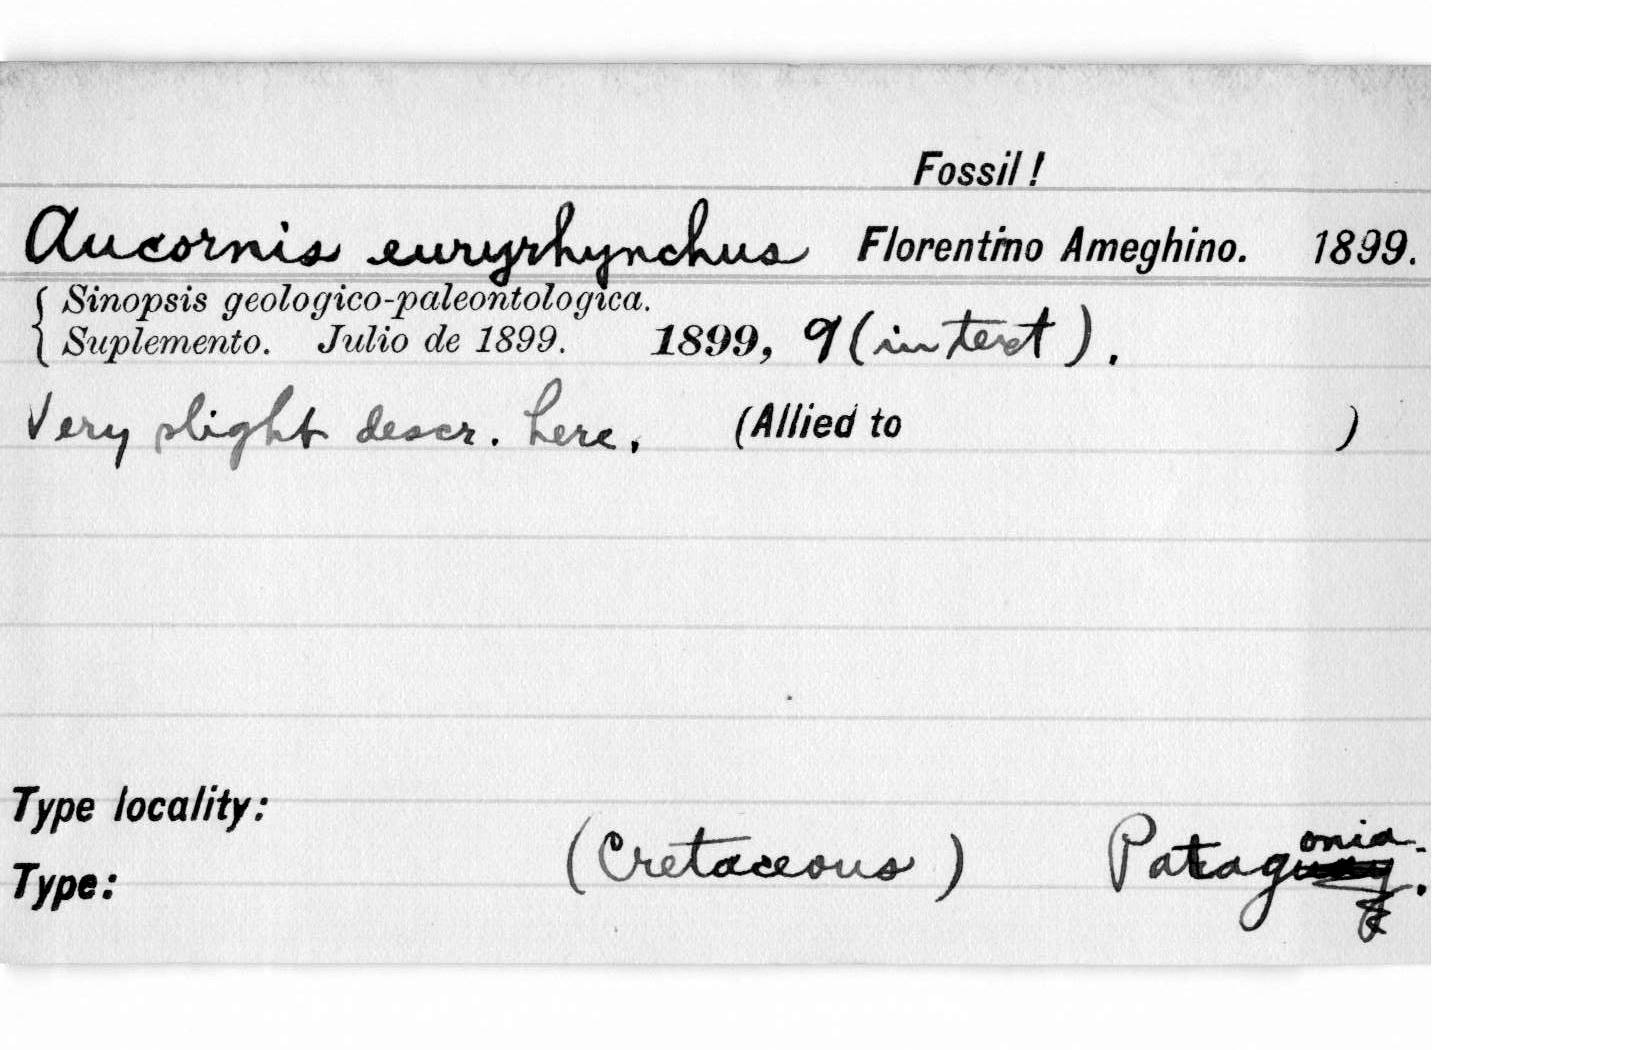 Fossil!
Aucornis euryrhynchus Florentino Ameghino. 1899.
Sinopsis geologico-paleontologica.
Suplemento. Julio de 1899. 1899, 9 (in text).
Very slight descr. here. (Allied to )
Type locality:
(Cretaceous) Patagonia.
Type: